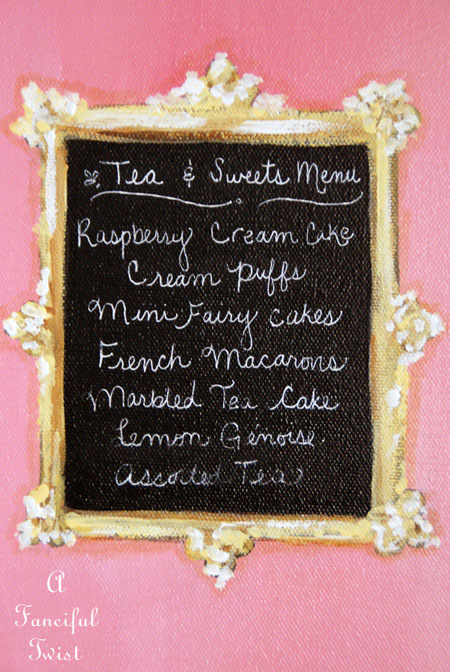 Tea & Sweets Menu
Raspberry Cream Cake
Cream Puffs
Mini Fairy Cakes
French Macarons
Marbled Tea Cake
Lemon Génoise
Assorted Teas
A
Fanciful
Twist